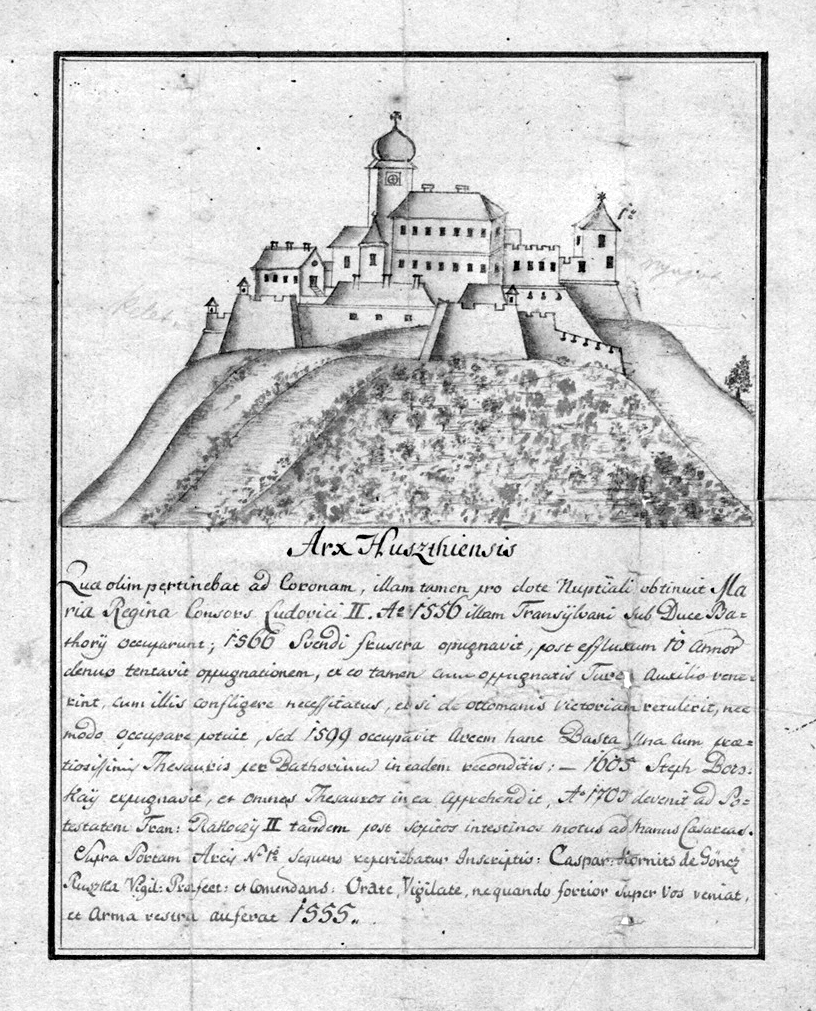 1º
Arx Huszthiensis
Quæ olim pertinebat ad Coronam, illam tamen pro dote Nuptiali obtinuit Ma
ria Regina Consors Ludovici II. Aº 1556 illam Transÿlvani sub Duce Ba=
thorÿ occuparunt; 1566 Svendi frustra opugnavit, post effluxum 10 Annor
denuo tentavit oppugnationem, ex eo tamen cum oppugnatis Auxilio vene=
rint, cum illis confligere necessitatus, et si de ottomanis victoriam retulerit, nec
modo occupare potuit, sed 1599 occupavit Arcem hanc Basta Una cum præ=
tiosissimis Thesauris per Bathorium in eadem reconditis; — 1605 Steph Bots=
kaÿ expugnavit, et omnes Thesauros in ea Apprehendit, Aº 1703 devenit ad Po=
testatem Fran: Rakoczÿ II tandem post sopitos intestinos motus ad Manus Cæsareas.
Supra Portam Arcis Nº 1º sequens reperiebatur Inscriptio: Caspar: Hornits de Göncz
Ruszka Vigil: Præfect: et Comendans: Orate, Vigilate, ne quando fortior super Vos veniat,
et Arma vestra auferat 1555.